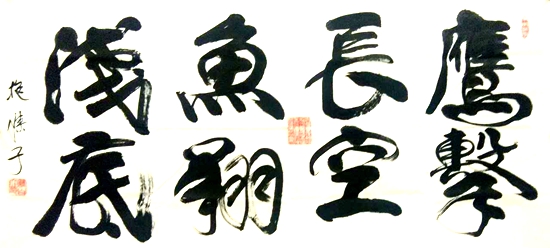 鷹擊
長空
魚翔
淺底